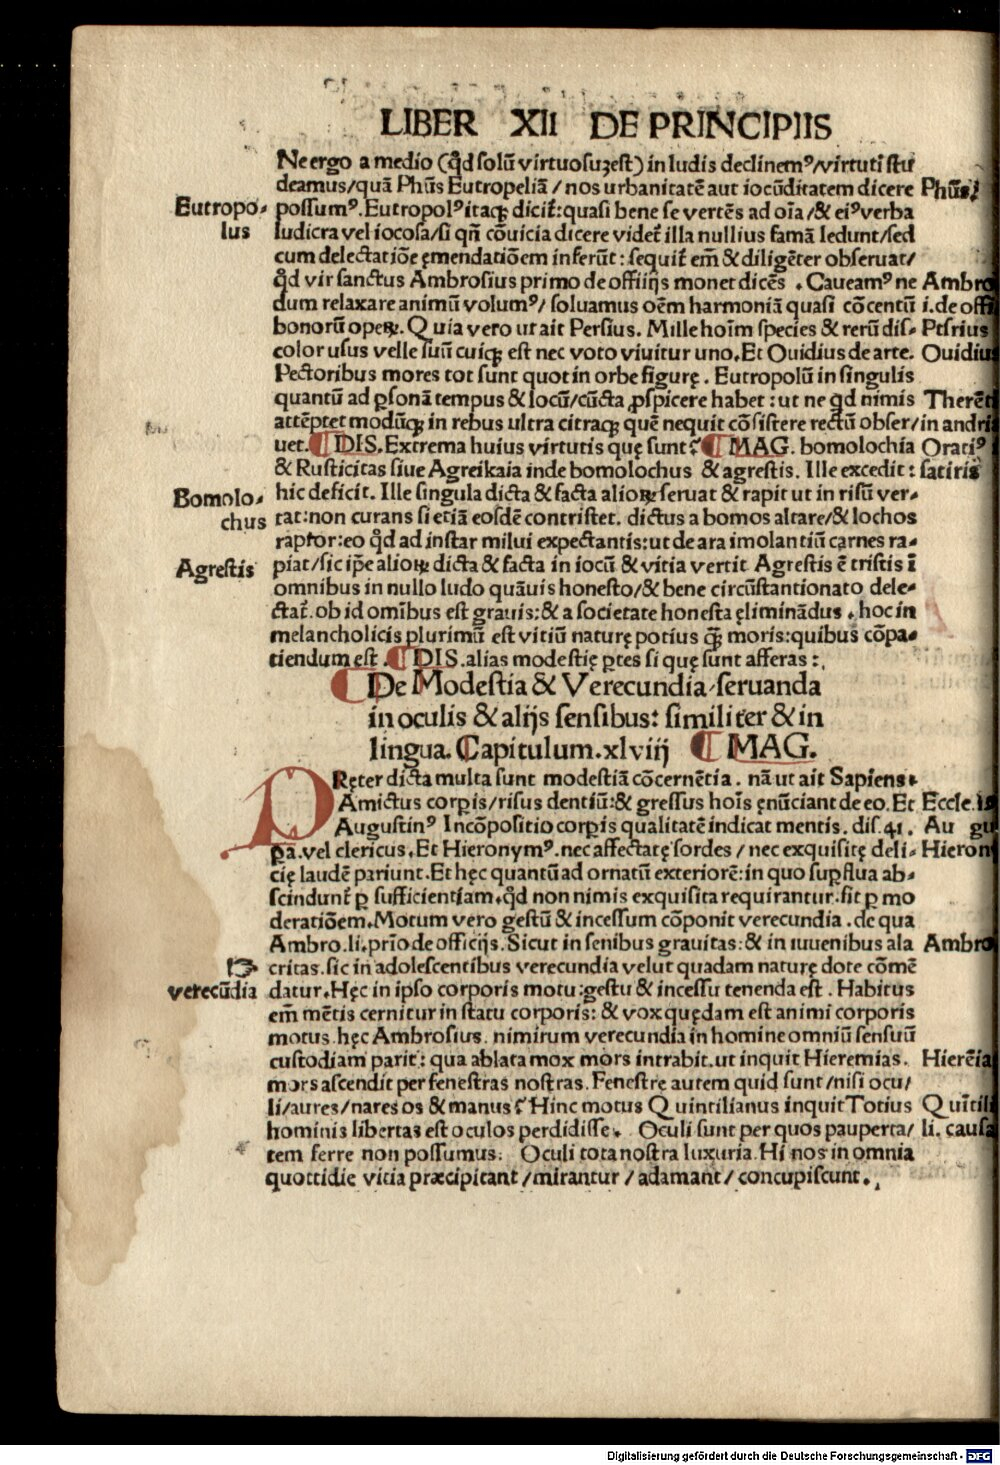 LIBER XII DE PRINCIPIIS
Ne ergo a medio (qđ solū virtuosuʒ est) in ludis declinemꝰ/virtuti stu
deamus/quā Phūs Eutropeliā / nos urbanitatē aut iocūditatem dicere
Phūs
Eutropo-
lus
possumꝰ. Eutropolꝰ itaqꝫ dicit̄: quasi bene se vertēs ad oīa/& eiꝰ verba
ludicra vel iocosa/si qñ cōuicia dicere videt̄ illa nullius famā ledunt/sed
cum delectatiōe ęmendatiōem inferūt: sequit̄ em̄ & diligēter obseruat/
qđ vir sanctus Ambrosius primo de offiijs monet dicēs . Caueamꝰ ne
Ambro
dum relaxare animū volumꝰ/ soluamus oēm harmoniā quasi cōcentū
i. de offi
bonorū operꝝ. Quia vero ut ait Persius. Mille hoīm species & rerū dis-
Ptsrius
color usus velle suū cuiqꝫ est nec voto viuitur uno. Et Ouidius de arte.
Ouidiu
Pectoribus mores tot sunt quot in orbe figurę . Eutropolū in singulis
quantū ad ꝑsonā tempus & locū/cūcta ꝓspicere habet : ut ne qđ nimis
Therēt
attēptet modūqꝫ in rebus ultra citraqꝫ quē nequit cōsistere rectū obser/
in andri
uet. ¶ DIS. Extrema huius virtutis quę sunt? ¶ MAG. bomolochia
Oratiꝰ
& Rusticitas siue Agreikaia inde bomolochus & agrestis. Ille excedit :
satiris
Bomolo-
chus
hic deficit. Ille singula dicta & facta alioꝝ seruat & rapit ut in risū ver-
tat: non curans si etiā eosdē contristet. dictus a bomos altare/& lochos
raptor: eo qđ ad instar milui expectantis: ut de ara imolantiū carnes ra-
Agrestis
piat/sic ip̄e alioꝝ dicta & facta in iocū & vitia vertit Agrestis ē tristis ī
omnibus in nullo ludo quāuis honesto/& bene circūstantionato dele-
ctat̄. ob id omībus est grauis: & a societate honesta ęliminādus . hoc in
melancholicis plurimū est vitiū naturę potius qꝫ̄ moris: quibus cōpa-
tiendum est . ¶ DIS. alias modestię ꝑtes si quę sunt afferas :.
¶ De Modestia & Verecundia seruanda
in oculis & alijs sensibus: similiter & in
lingua. Capitulum. xlviij ¶ MAG.
PRęter dicta multa sunt modestiā cōcernētia . nā ut ait Sapiens.
Amictus corꝑis/risus dentiū: & gressus hoīs ęnūciant de eo. Et
Eccle. is
Augustinꝰ Incōpositio corꝑis qualitatē indicat mentis. dis. 41 .
Au gu
ꝑā. vel clericus. Et Hieronymꝰ. nec affectatę sordes / nec exquisitę deli-
Hieron
cię laudē pariunt. Et hęc quantū ad ornatū exteriorē: in quo suꝑflua ab-
scindunt̄ ꝑ sufficientiam. qđ non nimis exquisita requirantur. sit ꝑ mo
deratiōem. Motum vero gestū & incessum cōponit verecundia . de qua
Ambro. li. prīo de officijs. Sicut in senibus grauitas: & in iuuenibus ala
Ambro
☞
verecūdia
critas. sic in adolescentibus verecundia velut quadam naturę dote cōmē
datur. Hęc in ipso corporis motu: gestu & incessu tenenda est . Habitus
em̄ mētis cernitur in statu corporis: & vox quędam est animi corporis
motus. hęc Ambrosius. nimirum verecundia in homine omniū sensuū
custodiam parit: qua ablata mox mors intrabit. ut inquit Hieremias .
Hierēia
mors ascendit per fenestras nostras. Fenestre autem quid sunt/nisi ocu/
li/aures/nares os & manus? Hinc motus Quintilianus inquit Totius
Quītili
hominis libertas est oculos perdidisse. Oculi sunt per quos pauperta/
li. causa
tem ferre non possumus. Oculi tota nostra luxuria. Hi nos in omnia
quottidie vitia præcipitant/mirantur/adamant/concupiscunt.
Digitalisierung gefördert durch die Deutsche Forschungsgemeinschaft - DFG